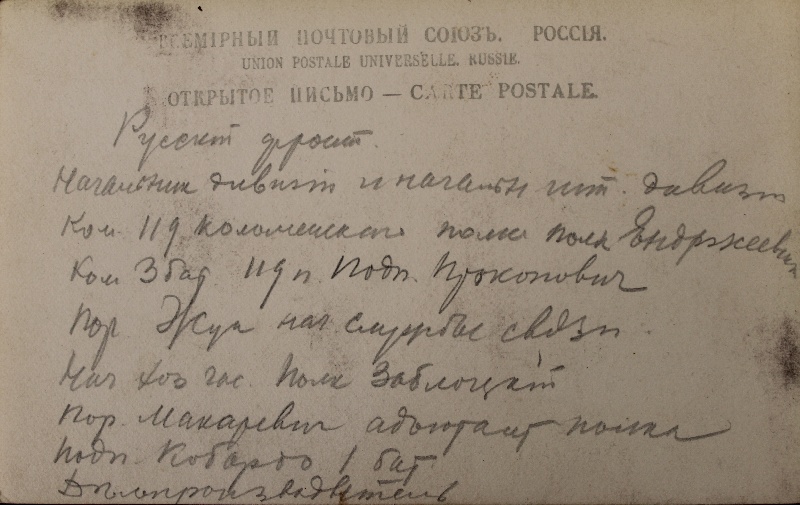 ВСЕМІРНЫЙ ПОЧТОВЫЙ СОЮЗЪ. РОССІЯ.
UNION POSTALE UNIVERSELLE. RUSSIE.
ОТКРЫТОЕ ПИСЬМО — CARTE POSTALE.
Русскій фронт.
Начальник дивизіи и начальн шт. дивизіи
Ком. 119 Коломенскаго полка полк Ендржеевич
Ком 3 бат 119 п. Подп. Прокопович
Пор. Жук нач службы связи
Нач хоз час. Полк Заблоцкій
Пор. Макаревич адъютант полка
Подп. 1 бат
Дѣлопроизводитель